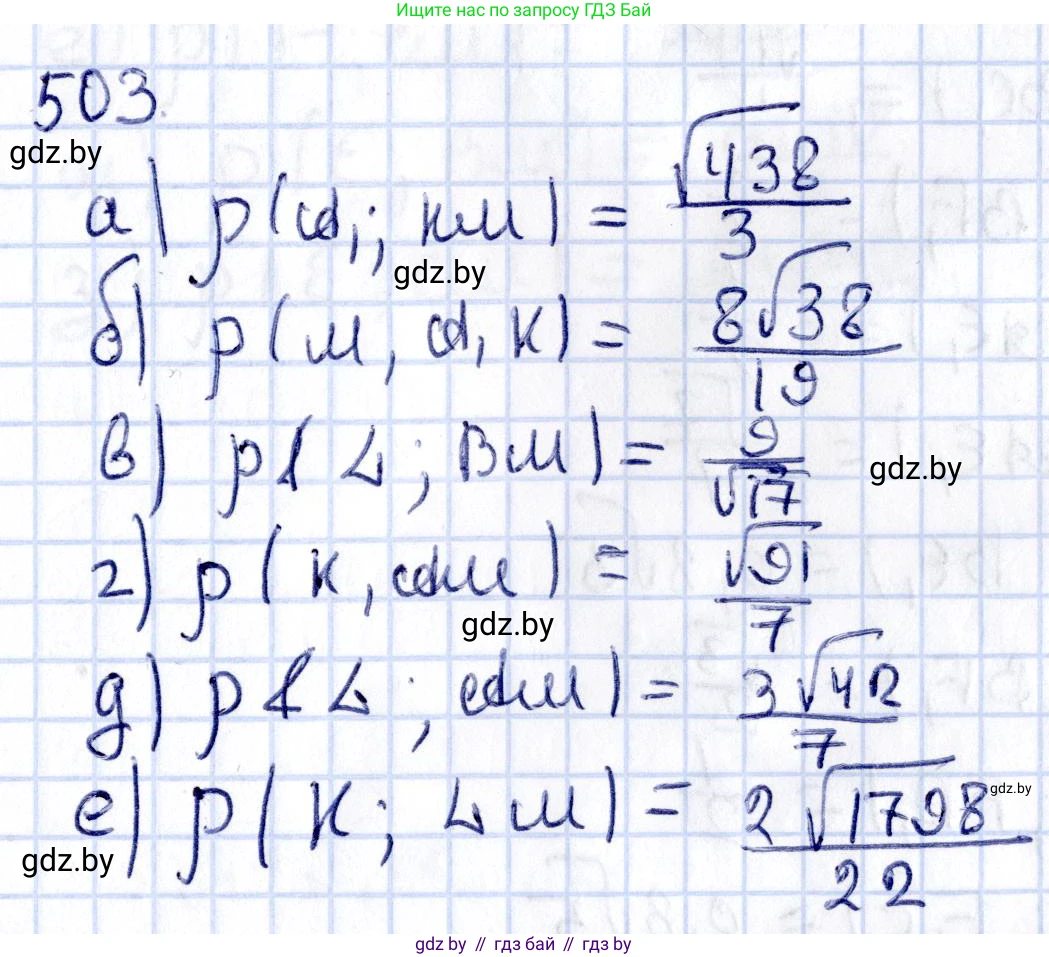 Ищите нас по запросу ГДЗ Бай
503.
gdz.by
а) p(A₁; КМ) = √438/3
gdz.by
б) p(М, A₁К) = 8√38/19
в) p(L; BM) = 9/√17
gdz.by
г) p(К, AM) = √91/7
gdz.by
д) p(L; AM) = 3√42/7
е) p(К; LM) = 2√1798/22
gdz.by
gdz.by
gdz.by // гдз бай // гдз by